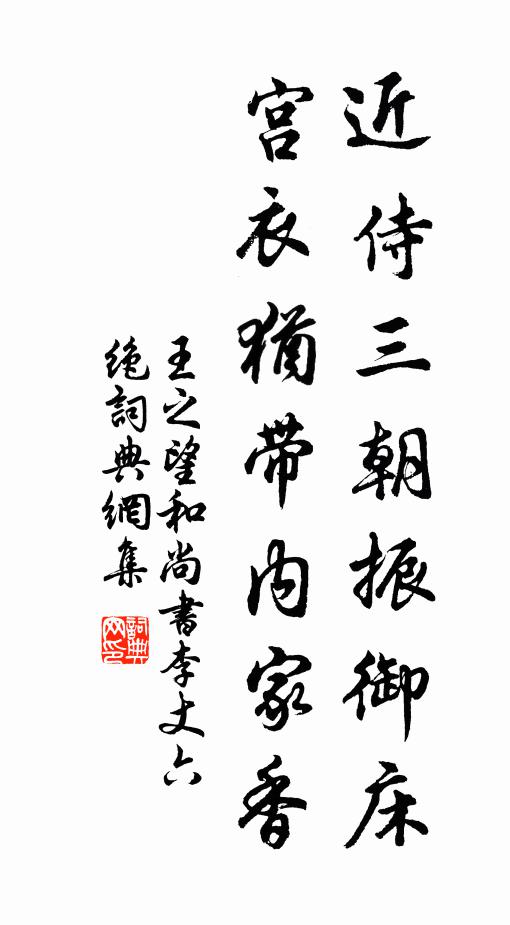 近侍三朝振御床
宫衣猶带内家香
王之望和尚書李丈六
绝詞典網集
詞典网印